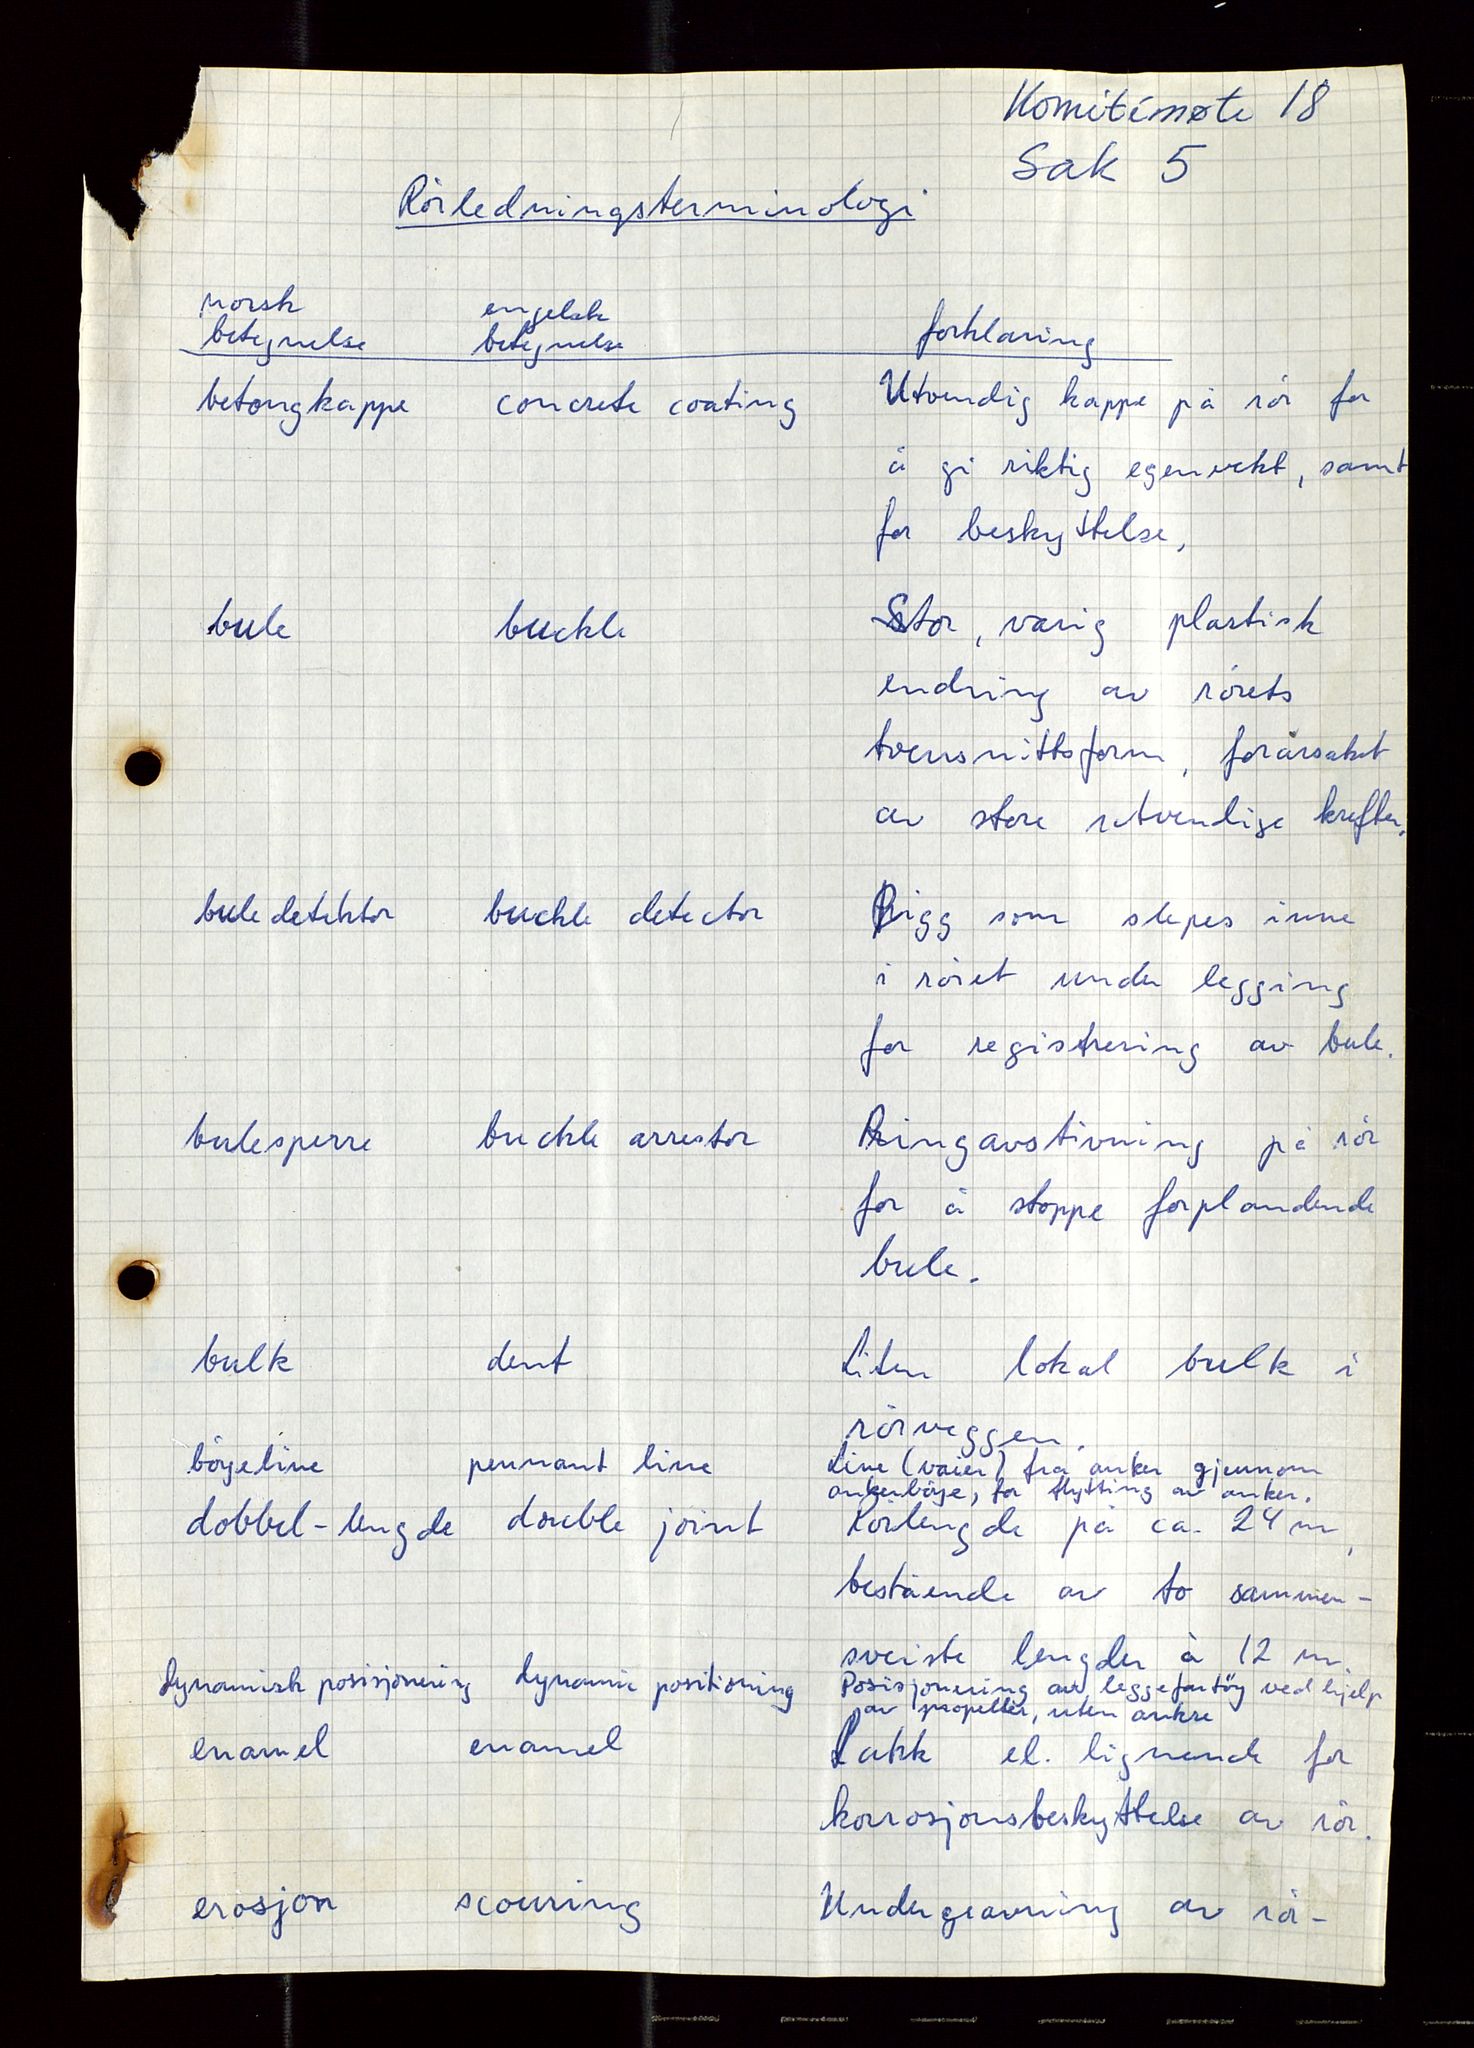 Komitémøte 18
Sak 5
Rörledningsterminologi
norsk betegnelse engelsk betegnelse forklaring
betongkappe concrete coating Utvendig kappe på rör for
å gi riktig egenvekt, samt
for beskyttelse,
bule buckle Stor, varig plastisk
endring av rörets
tversnittsform, forårsaket
av store utvendige krefter.
buledetektor buckle detector Rigg som slepes inne
i röret under legging
for registrering av bule.
bulesperre buckle arrestor Ringavstivning på rör
for å stoppe forplandende
bule.
bulk dent Liten lokal bulk i
rörveggen.
böyeline pennant line Line (vaier) fra anker gjennom
ankerböye, for flytting av anker.
dobbel-lengde double joint Rörlengde på ca. 24 m,
bestående av to sammen-
sveiste lengder à 12 m.
dynamisk posisjonering dynamic positioning Posisjonering av leggefartöy ved hjelp
av propeller, uten ankre
enamel enamel Lakk el. lignende for
korrosjonsbeskyttelse av rör.
erosjon scouring Undergravning av rör-